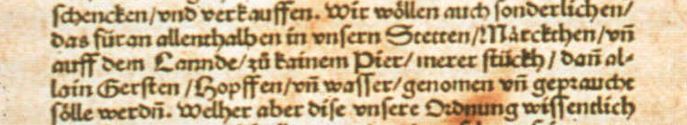 schencken/vnd verkauffen. Wir wöllen auch sonderlichen/
das füran allenthalben in vnsern Stetten/Märckthen/vñ
auff dem Lannde/zů kainem Pier/merer stückh/dañ al-
lain Gersten/Hopffen/vñ wasser/genomen vñ geprauche
sölle werdñ. Welher aber dise vnsere Ordnung wissendlich